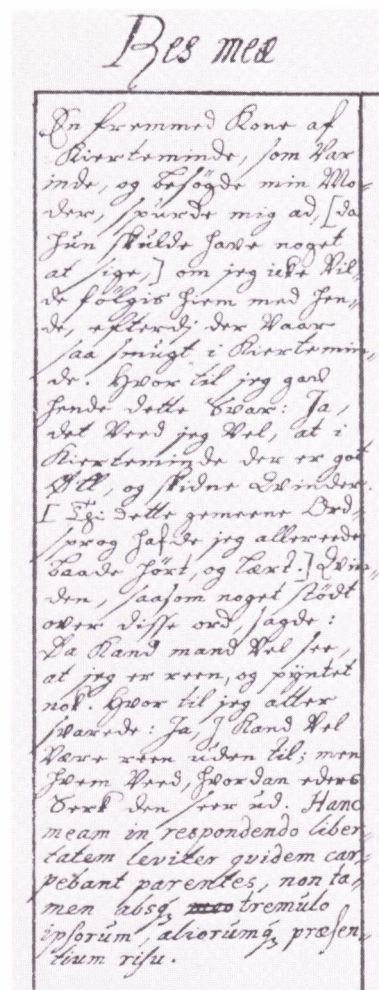 Res meæ
En fremmed Kone af
Kierteminde, som Var
inde, og besögde min Mo-
der, spurde mig ad, [da
hun skulde have noget
at sige,] om jeg icke Vil-
de fölgis hiem med hen-
de, efterdj der Vaar
saa smugt i Kiertemin-
de. Hvor til jeg gav
hende dette Svar: Ja,
det Veed jeg Vel, at i
Kierteminde der er got
Öll, og skidne Qvinder.
[Thi dette gemeene Ord-
sprog hafde jeg allereede
baade hört, og lært.] Qvin-
den, saasom noget stödt
over disse ord, sagde:
Da Kand mand Vel see,
at jeg er reen, og pÿntet
nok. Hvor til jeg atter
svarede: Ja, J Kand Vel
Være reen uden til; men
hvem Veed, hvordan eders
Serk den seer ud. Hanc
meam in respondendo liber-
tatem leviter qvidem car-
pebant parentes, non ta-
men absqꝫ tremulo
ipsorum, aliorumqꝫ præsen-
tium risu.